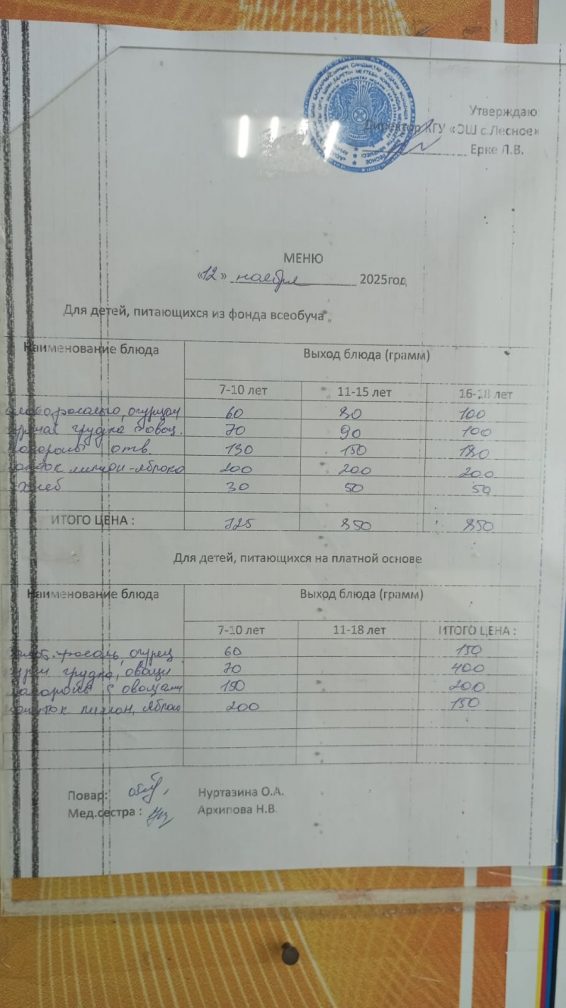 Утверждаю
Директор КГУ «ОШ с.Лесное»
Ерке Л.В.
МЕНЮ
«12» ноября 2025год
Для детей, питающихся из фонда всеобуча
Наименование блюда Выход блюда (грамм)
7-10 лет 11-15 лет 16-18 лет
огурцы 60 80 100
грудка овощ. 70 90 100
макароны отв. 130 150 180
напиток лимон-яблоко 200 200 200
хлеб 30 50 50
ИТОГО ЦЕНА : 725 850 850
Для детей, питающихся на платной основе
Наименование блюда Выход блюда (грамм)
7-10 лет 11-18 лет ИТОГО ЦЕНА :
огурец 60 150
грудка, овощи 70 400
макароны с овощами 150 200
напиток лимон, яблоко 200 150
Повар: Нуртазина О.А.
Мед.сестра : Архипова Н.В.